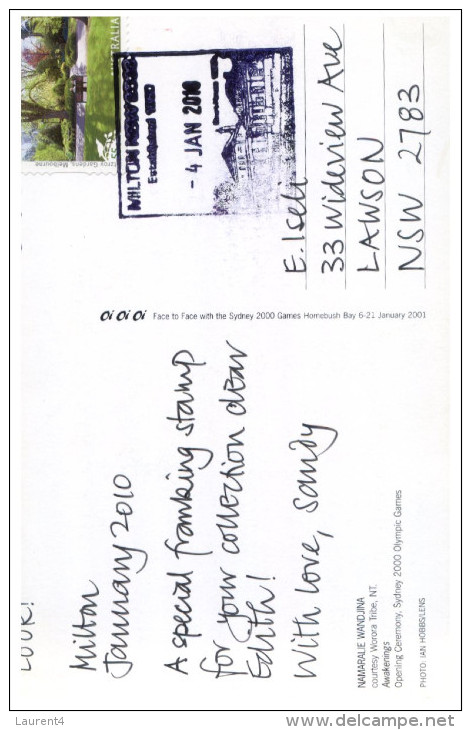 LOOK!
Milton
January 2010
A special franking stamp
for your collection dear
Edith!
With love, Sandy
NAMARALIE WANDJINA
courtesy Worora Tribe, NT.
Awakenings
Opening Ceremony, Sydney 2000 Olympic Games
PHOTO: IAN HOBBS/LENS
Oi Oi Oi Face to Face with the Sydney 2000 Games Homebush Bay 6-21 January 2001
AUSTRALIA
Gardens, Melbourne
MILTON
Established
- 4 JAN 2010
E. Iseli
33 Wideview Ave
LAWSON
NSW 2783
Laurent4
delcampe.net